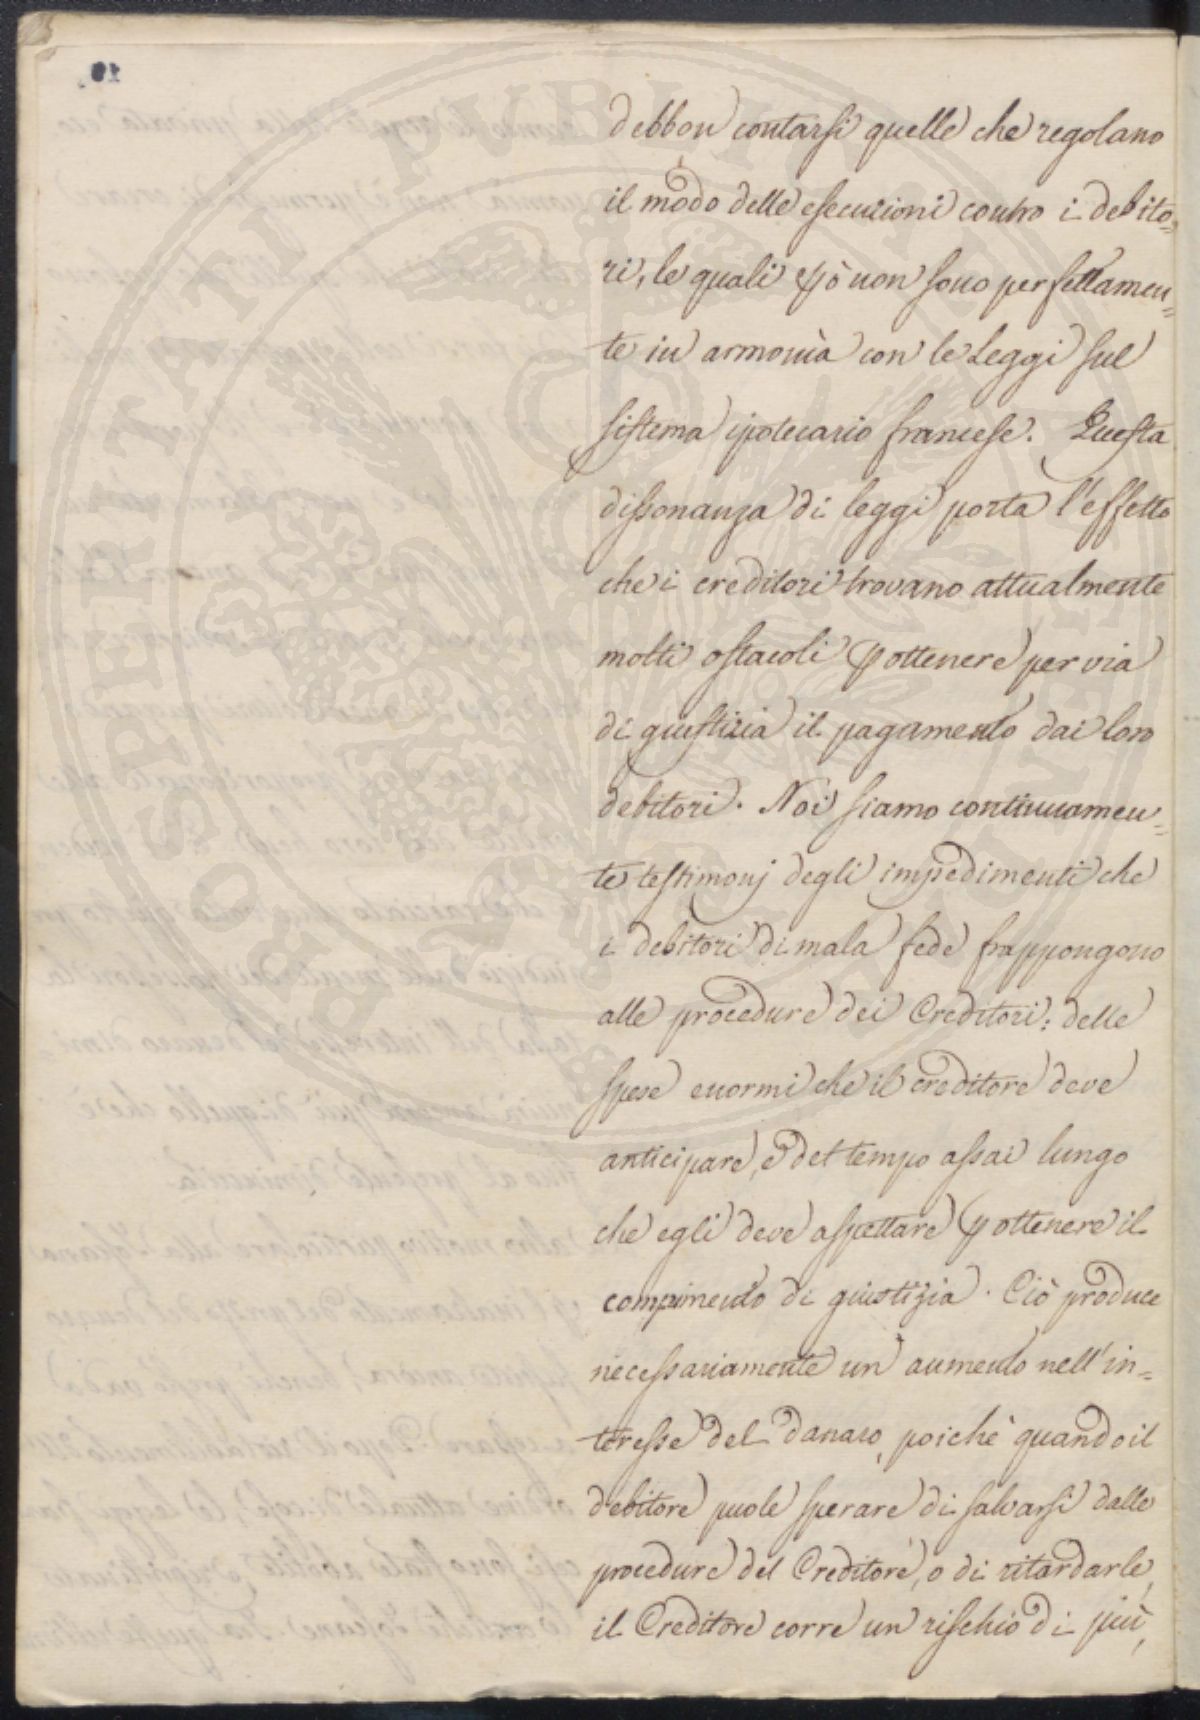 debbon contarsi quelle che regolano
il modo delle esecuzioni contro i debito=
ri, le quali pò non sono perfettamen=
te in armonìa con le Leggi sul
sistema ipotecario francese. Questa
dissonanza di leggi porta l'effetto
che i creditori trovano attualmente
molti ostacoli p ottenere per via
di giustizia il pagamento dai loro
debitori. Noi siamo continuamen=
te testimonj degli impedimenti che
i debitori di mala fede frappongono
alle procedure dei Creditori: delle
spese enormi che il creditore deve
anticipare, e del tempo assai lungo
che egli deve aspettare p ottenere il
compimento di giustizia. Ciò produce
necessariamente un aumento nell'in=
teresse del danaro, poichè quando il
debitore puole sperare di salvarsi dalle
procedure del Creditore, o di ritardarle,
il Creditore corre un rischio di più,
PROSPERITATI PUBLICAE
19